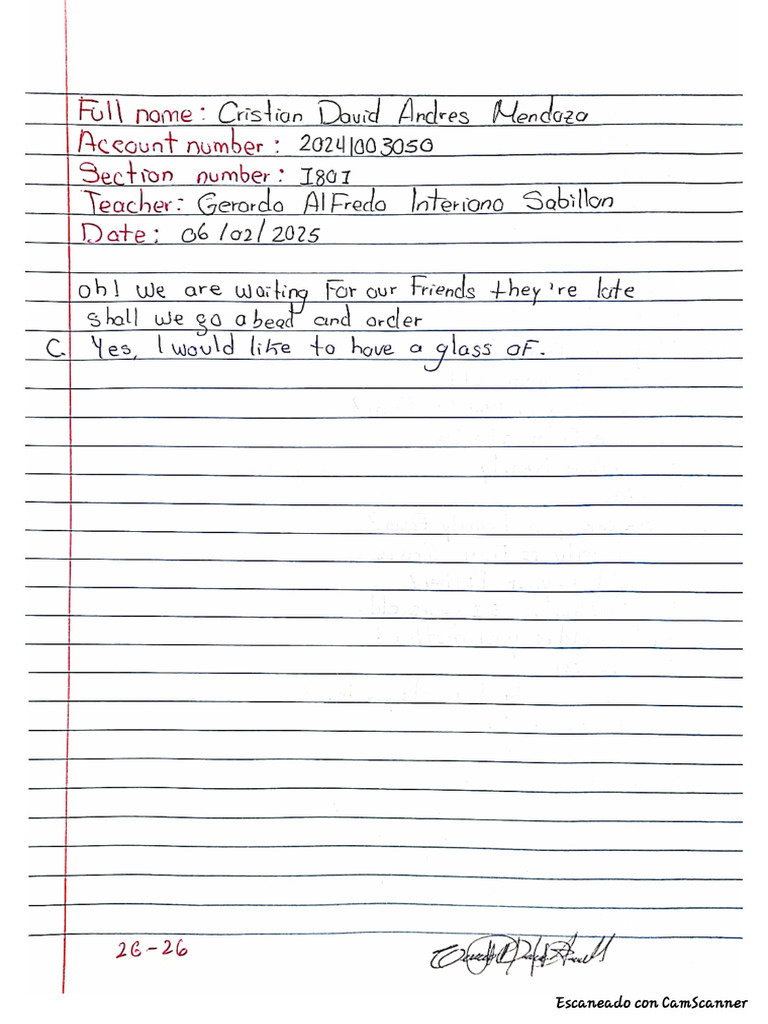 Full name: Cristian David Andres Mendoza
Account number: 20241003050
Section number: 1801
Teacher: Gerardo Alfredo Interiano Sabillon
Date: 06/02/2025
oh! we are waiting for our friends they're late
shall we go ahead and order
C. Yes, I would like to have a glass of.
26-26
Escaneado con CamScanner